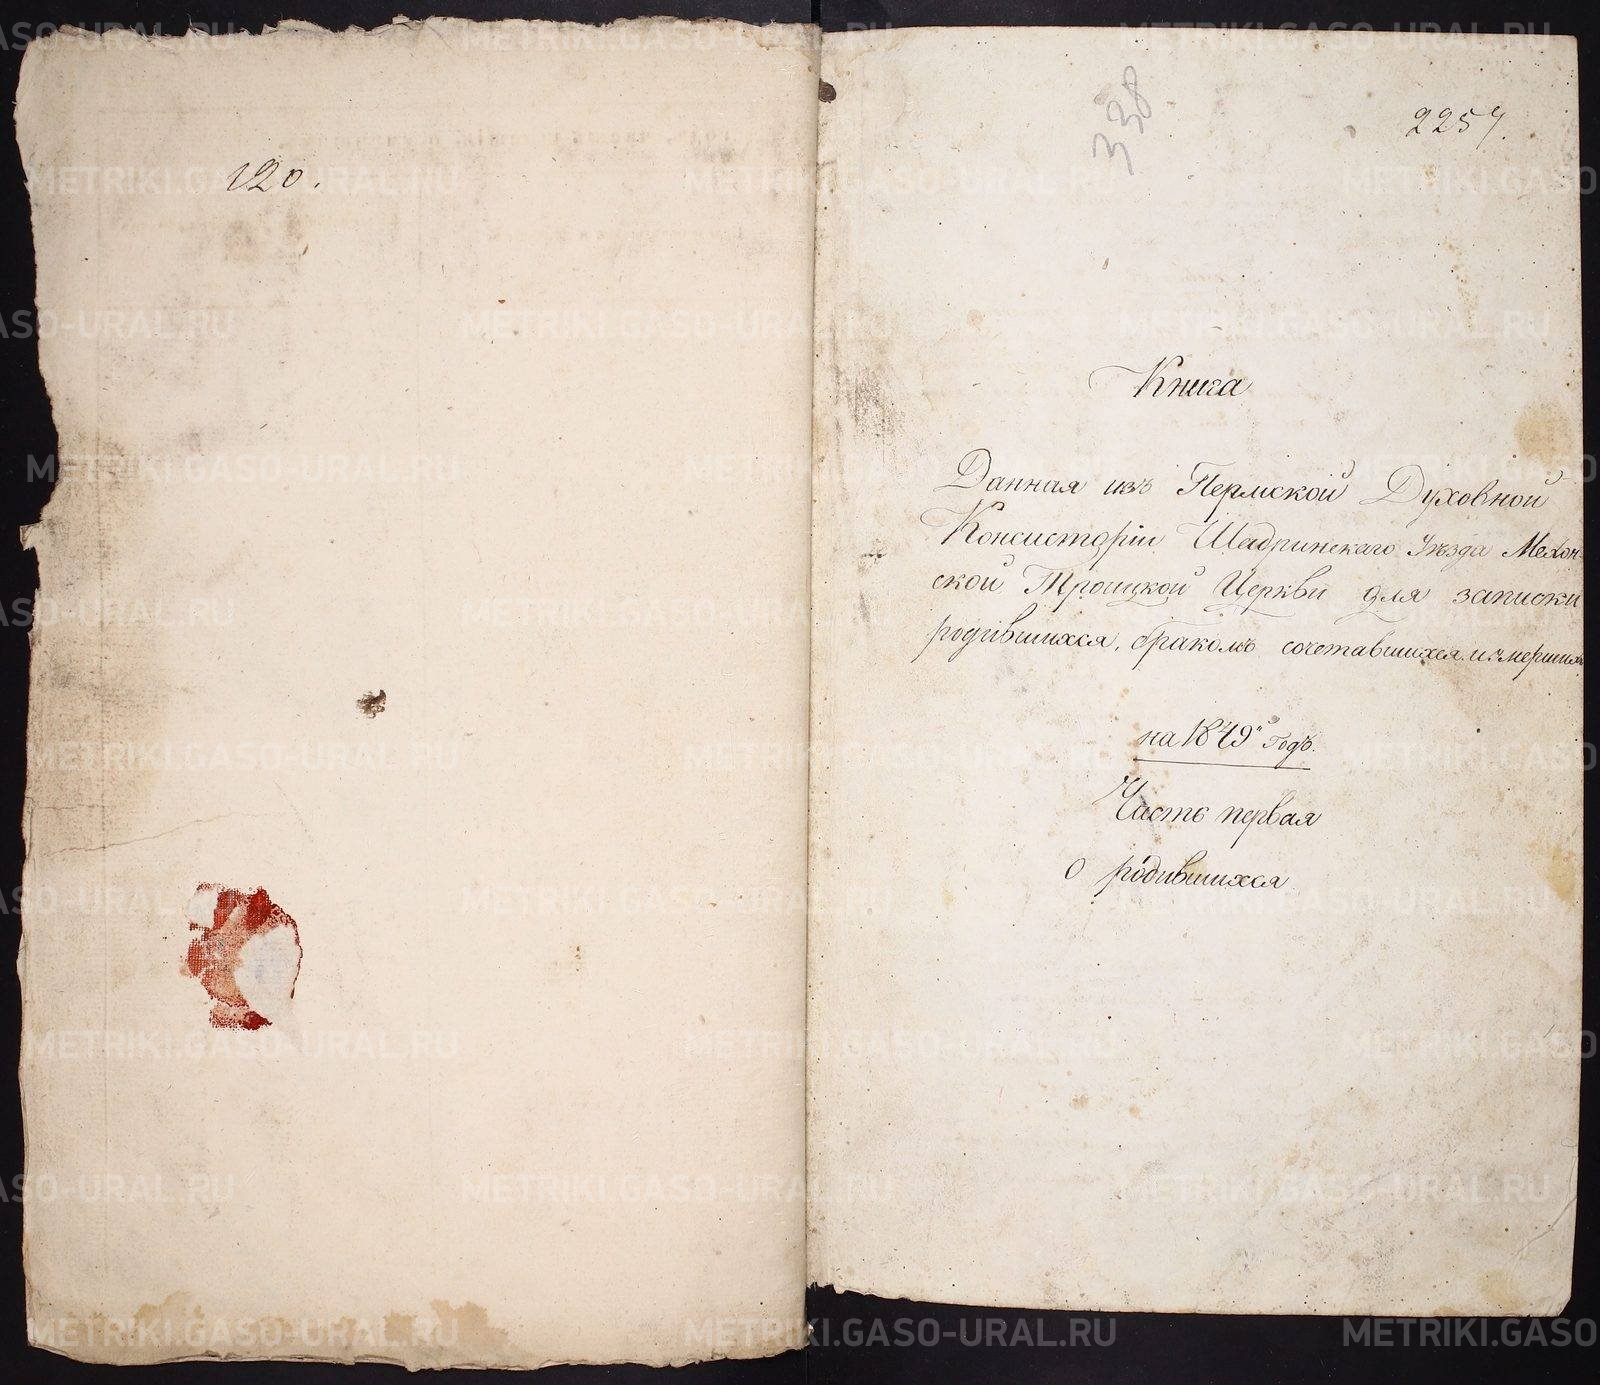 120.
338
2257.
Книга
Данная изъ Пермской Духовной
Консисторіи Шадринскаго Уѣзда Мехон-
ской Троицкой Церкви для записки
родившихся, бракомъ сочетавшихся и умершихъ
на 1849й Годъ.
Часть первая
О родившихся